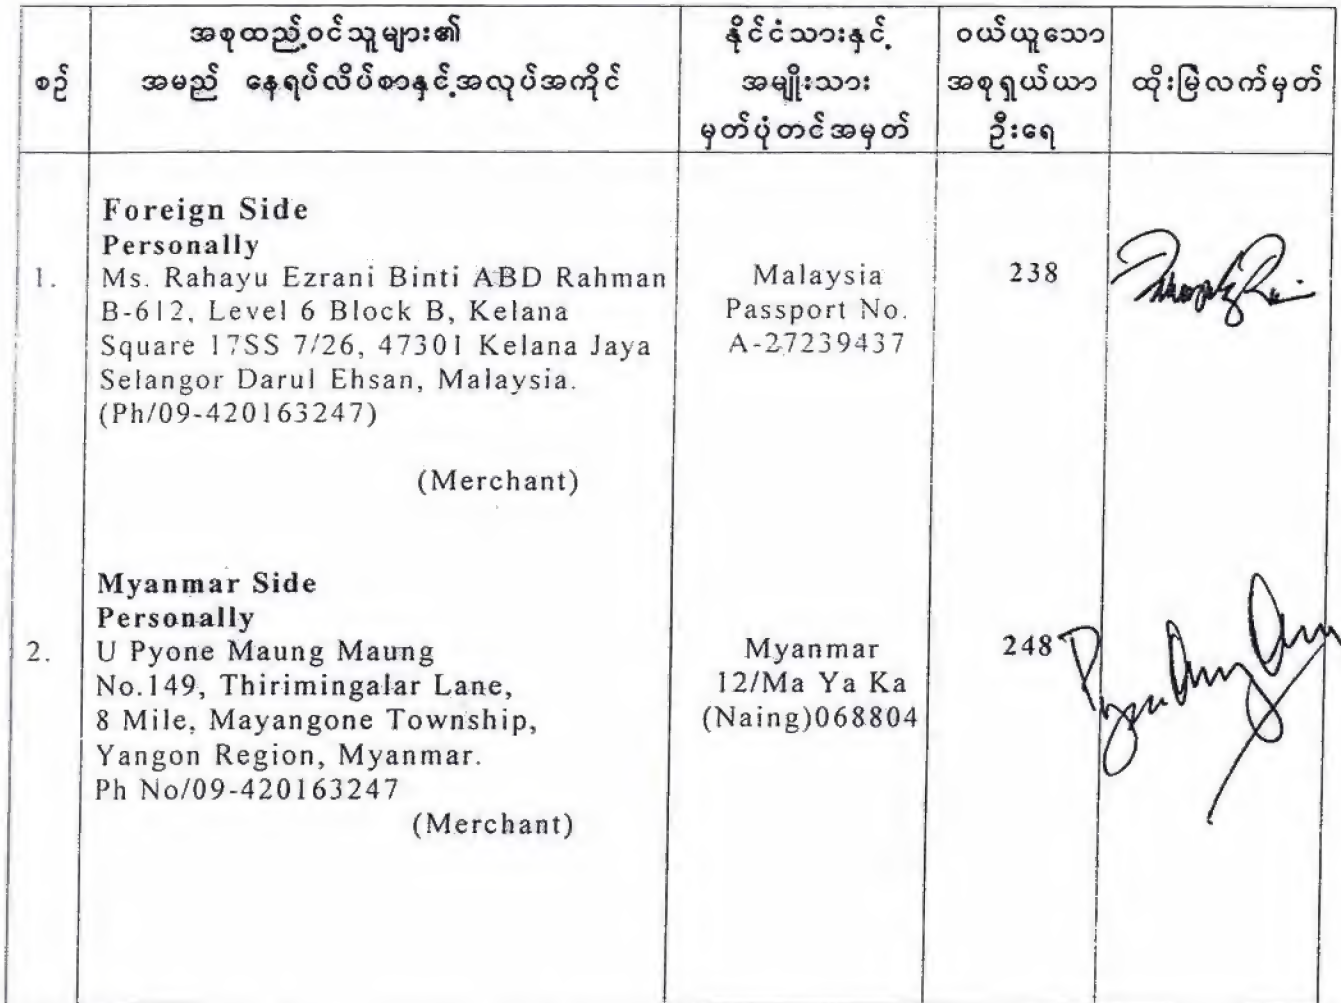 စဉ်
အစုထည့်ဝင်သူများ၏
အမည် နေရပ်လိပ်စာနှင့်အလုပ်အကိုင်
နိုင်ငံသားနှင့်
အမျိုးသား
မှတ်ပုံတင်အမှတ်
ဝယ်ယူသော
အစုရှယ်ယာ
ဦးရေ
ထိုးမြဲလက်မှတ်
Foreign Side
Personally
1.
Ms. Rahayu Ezrani Binti ABD Rahman
B-612, Level 6 Block B, Kelana
Square 17SS 7/26, 47301 Kelana Jaya
Selangor Darul Ehsan, Malaysia.
(Ph/09-420163247)
(Merchant)
Malaysia
Passport No.
A-27239437
238
Myanmar Side
Personally
2.
U Pyone Maung Maung
No.149, Thirimingalar Lane,
8 Mile, Mayangone Township,
Yangon Region, Myanmar.
Ph No/09-420163247
(Merchant)
Myanmar
12/Ma Ya Ka
(Naing)068804
248